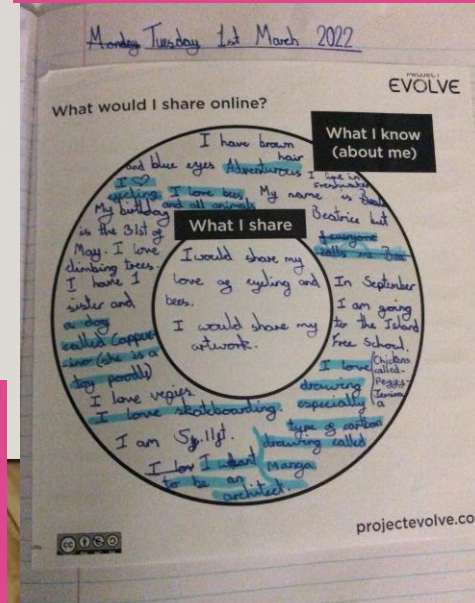 Monday Tuesday 1st March 2022
PROJECT
EVOLVE
What would I share online?
What I know
(about me)
I have brown
hair
and blue eyes Adventurous
I ♡
cycling I love bees
and all animals
I live in
freshwater
My name is
Beatrice but
everyone
calls me Bea
My birthday
is the 31st of
May. I love
climbing trees.
I have 1
sister and
a dog
called Cappuc
ino (she is a
toy poodle)
I love vegies
I love skateboarding.
I am 5ft.
I want
to be an
architect.
In September
I am going
to the Island
Free School.
I love
drawing
especially a
type of cartoon
drawing called
Manga
Chickens
called
Peggy
Jemima
What I share
I would share my
love of cycling and
bees.
I would share my
artwork.
cc
projectevolve.co